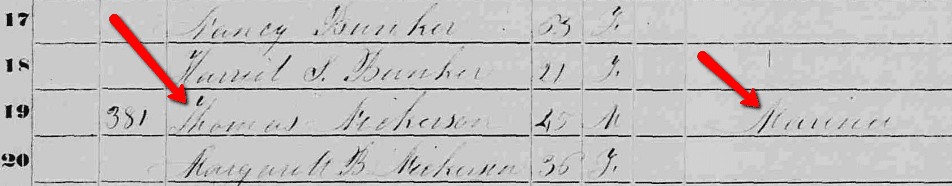 17 Nancy Bunker 53 F
18 Harriet S. Bunker 21 F
19 381 Thomas Nickerson 45 M Mariner
20 Margarett B Nickerson 36 F